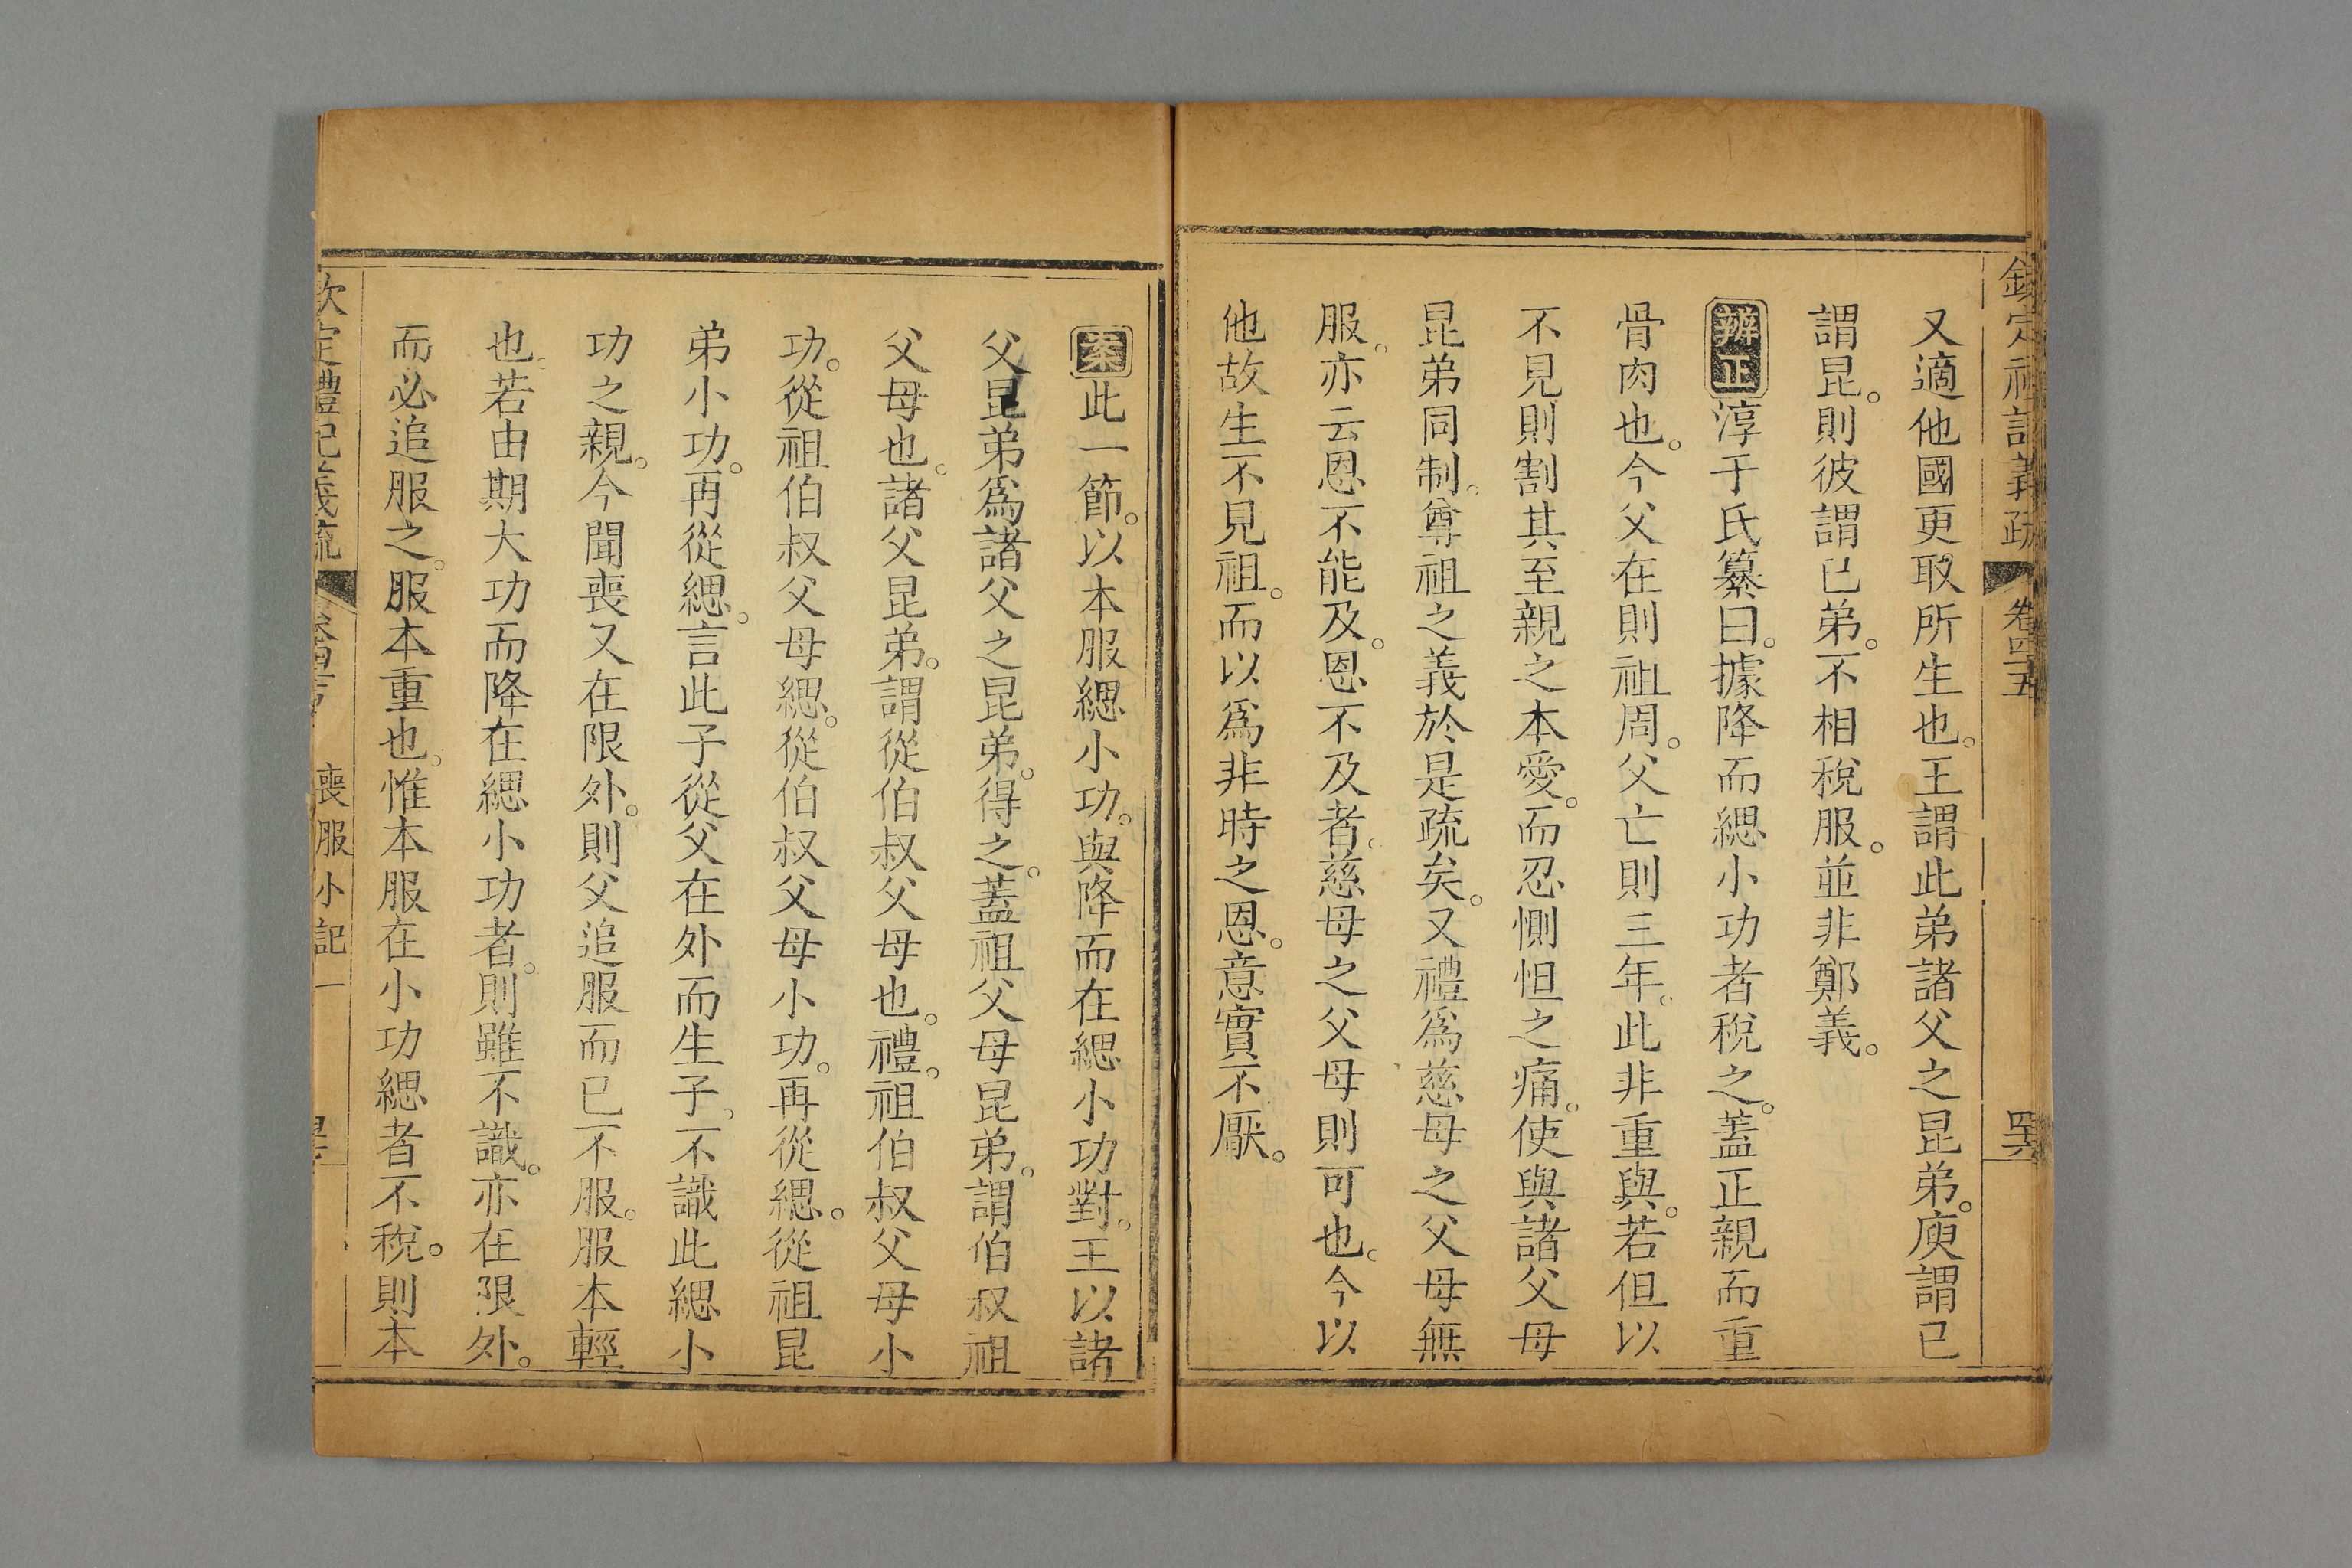 欽定禮記義疏 卷四十五 四六
又適他國更取所生也。王謂此弟諸父之昆弟。庾謂己
謂昆。則彼謂已弟。不相稅服。並非鄭義。
辨正淳于氏纂曰。據降而緦小功者稅之。蓋正親而重
骨肉也。今父在則祖周。父亡則三年。此非重與。若但以
不見則割其至親之本愛。而忍惻怛之痛。使與諸父母
昆弟同制。尊祖之義於是疏矣。又禮爲慈母之父母無
服。亦云恩不能及。恩不及者。慈母之父母則可也。今以
他故生不見祖。而以爲非時之恩。意實不厭。
案此一節。以本服緦小功。與降而在緦小功對。王以諸
父昆弟爲諸父之昆弟。得之。蓋祖父母昆弟。謂伯叔祖
父母也。諸父昆弟。謂從伯叔父母也。禮。祖伯叔父母小
功。從祖伯叔父母緦。從伯叔父母小功。再從緦。從祖昆
弟小功。再從緦。言此子從父在外而生子。不識此緦小
功之親。今聞喪又在限外。則父追服而已不服。服本輕
也。若由期大功而降在緦小功者。則雖不識。亦在限外。
而必追服之。服本重也。惟本服在小功緦者不稅。則本
欽定禮記義疏 喪服小記一